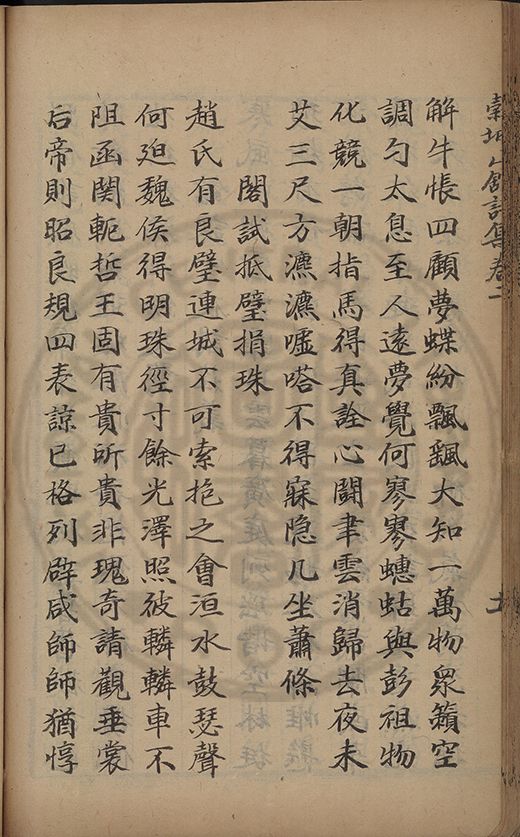 山館詩集卷二
解牛悵四顧夢蝶紛飄飄大知一萬物衆籟空
調勺太息至人遠夢覺何寥寥蟪蛄與彭祖物
化競一朝指馬得真詮心鬪聿雲消歸去夜未
艾三尺方瀌瀌噓嗒不得寐隐几坐蕭條
閣試抵璧捐珠
趙氏有良璧連城不可索抱之會洹水鼓瑟聲
何廹魏侯得明珠徑寸餘光澤照彼轔轔車不
阻函関軛哲王固有貴所貴非瑰奇請觀垂裳
后帝則昭良規四表諒已格列辟咸師師猶惇